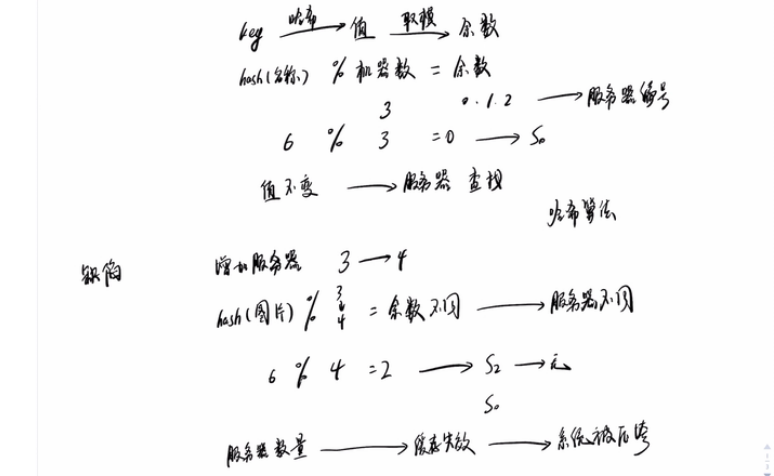 key 哈希→ 值 取模→ 余数
hash(名称) % 机器数 = 余数
3 0.1.2 → 服务器编号
6 % 3 =0 → S0
值不变 → 服务器 查找
哈希算法
缺陷 增加服务器 3→4
hash(图片) % 3↓4 = 余数不同 → 服务器不同
6 % 4 =2 → S2 → 无
S0
服务器数量 → 缓存失效 → 系统被压垮